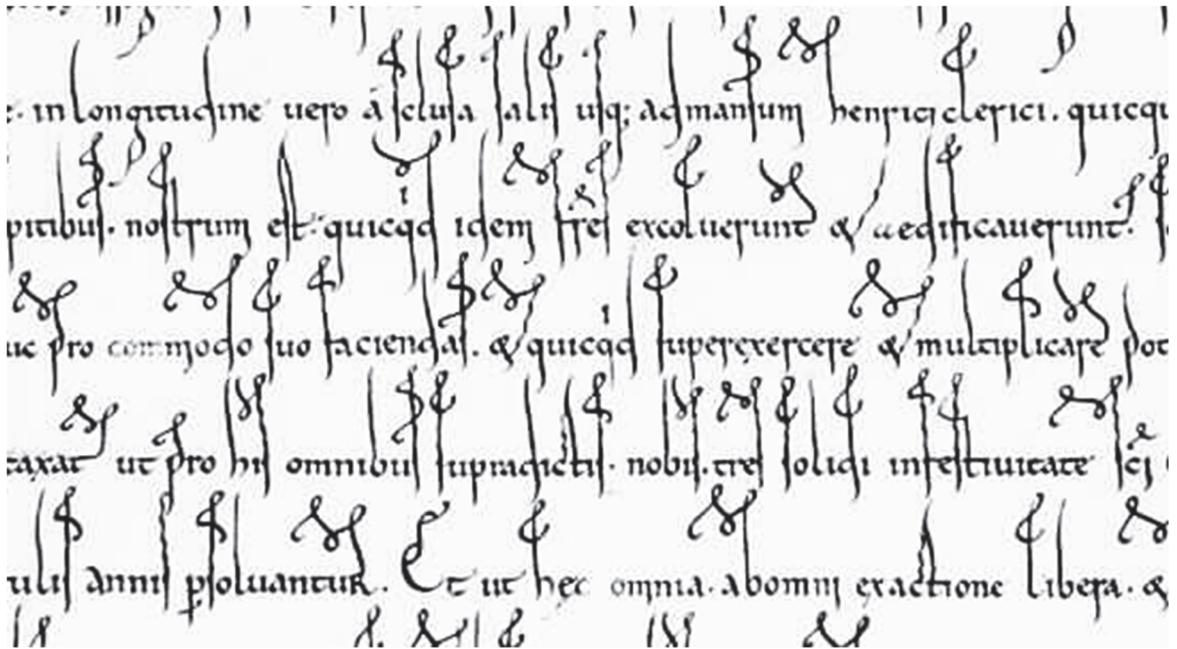 in longitudine uero a sclusa salis usq; ad mansum henrici clerici. quicqu
pitibus. nostrum est. quicqd idem fres excoluerunt & aedificauerunt.
uc pro commodo suo faciendas. & quicqd superexercere & multiplicare pot
taxat ut pro his omnibus supradictis. nobis. tres solidi infestiuitate sci
ulis annis psoluantur. Et ut hec omnia. abomni exactione libera. &